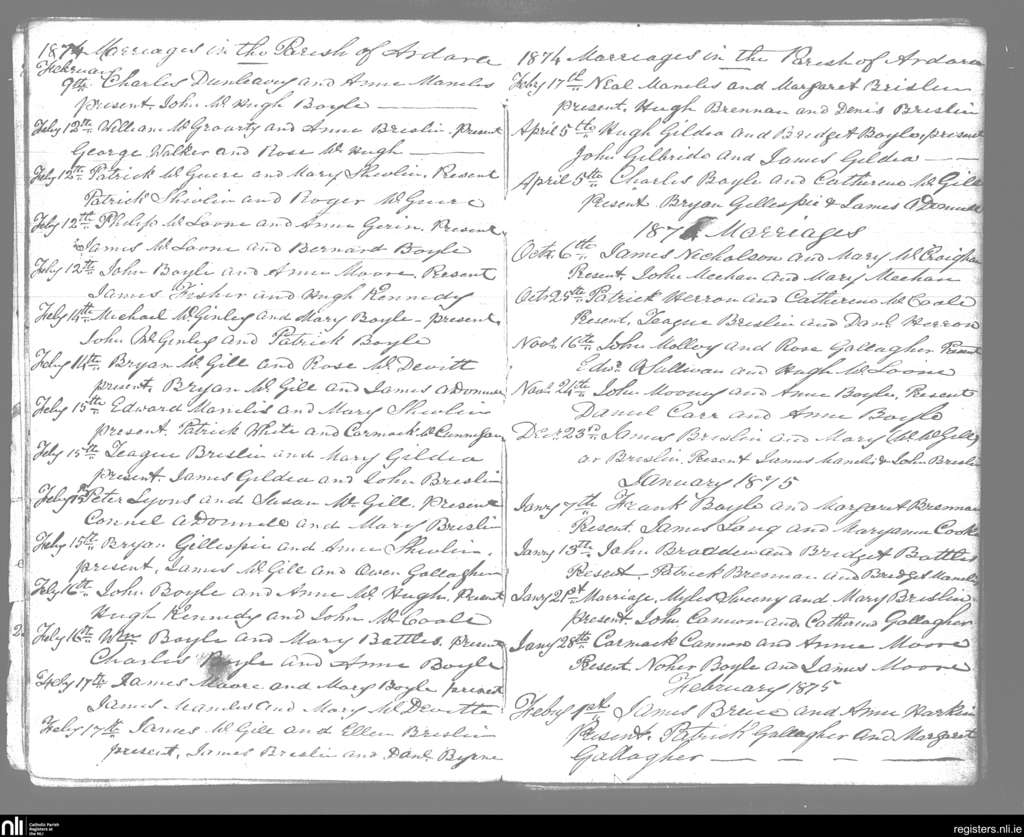 1874 Marriages in the Parish of Ardara
February
9th Charles Dunleavy and Anne Maneles
present John McHugh Boyle
Feby 12th William McGroarty and Anne Breslin. present
George Walker and Rose McHugh
Feby 12th Patrick McGuire and Mary Shevlin. Present
Patrick Shevlin and Roger McGuire
Feby 12th Philip McLoone and Anne Gerin. Present
James McLoone and Bernard Boyle
Feby 12th John Boyle and Anne Moore. Present
James Fisher and Hugh Kennedy
Feby 14th Michael McGinley and Mary Boyle - present.
John McGinley and Patrick Boyle
Feby 14th Bryan McGill and Rose McDevitt
present. Bryan McGill and James
Feby 15th Edward Manelis and Mary Shevlin
present. Patrick White and Cormack
Feby 15th Teague Breslin and Mary Gildea
present. James Gildea and John Breslin
Feby 15th Peter Lyons and Susan McGill. Present
Connel ODonnell and Mary Breslin
Feby 15th Bryan Gillespie and Anne Shevlin.
present. James McGill and Owen Gallagher
Feby 16th John Boyle and Anne McHugh. Present
Hugh Kennedy and John McCoole
Feby 16th Wm Boyle and Mary Battles. present
Charles Boyle and Anne Boyle
Feby 17th James Moore and Mary Boyle present
James Maneles and Mary McDevitte
Feby 17th James McGill and Ellen Breslin
present. James Breslin and Danl. Byrne
1874 Marriages in the Parish of Ardara
Feby 17th Neal Maneles and Margaret Brislin
present. Hugh Brennan and Denis Breslin
April 5th Hugh Gildea and Bridget Boyle present
John Gilbride and James Gildea
April 5th Charles Boyle and Catherine McGill
present Bryan Gillespie & James ODonnell
1874 Marriages
Octr. 6th James Nicholson and Mary McCroighan
Present. John Meehan and Mary Meehan
Octr 25th Patrick Herron and Catherine McCoole
Present. Teague Breslin and Danl Herron
Novr 16th John Molloy and Rose Gallagher Present
Edwd. OSullivan and Hugh McLoone
Novr 24th John Mooney and Anne Boyle. Present
Daniel Carr and Anne Boyle
Decr 23rd James Breslin and Mary (McGill)
or Breslin. Present James Maneles & John Breslin
January 1875
Janry 7th Frank Boyle and Margaret Brennan
Present. James Long and Maryanne Cooke
Janry 13th John Brodden and Bridget Battles
Present. Patrick Brennan and Bridget Maneles
Janry 21st Marriage. Myles Sweeny and Mary Brislin
present. John Cannon and Catherine Gallagher
Jany 28th Cormack Cannon and Anne Moore
Present. Noher Boyle and James Moore
February 1875
Feby 1st James Brece and Anne Harkin
Present. Patrick Gallagher and Margaret
Gallagher
nli Catholic Parish Registers at the NLI
registers.nli.ie